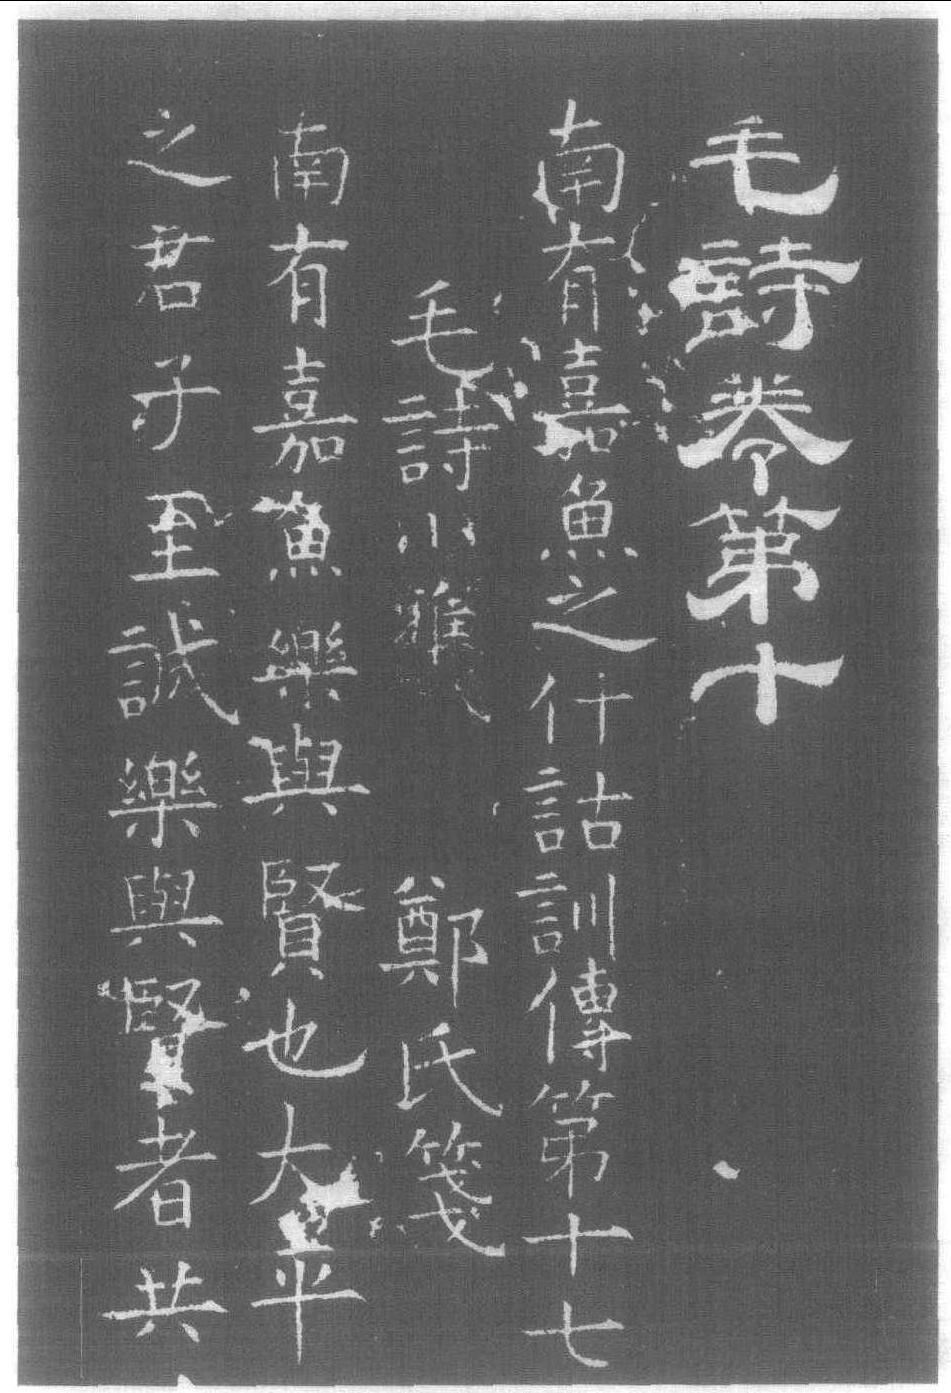 毛詩卷第十
南有嘉魚之什詁訓傳第十七
毛詩小雅 鄭氏箋
南有嘉魚樂與賢也大平
之君子至誠樂與賢者共